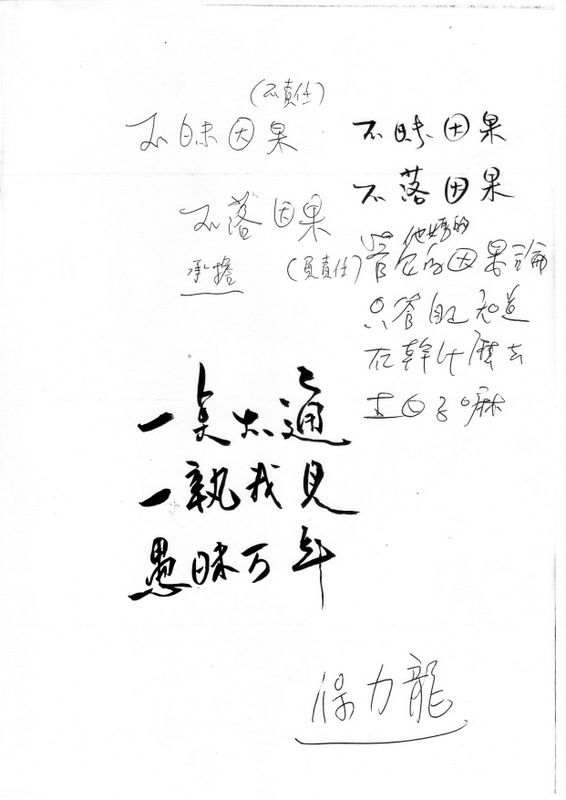 (不責任)
不昧因果
不落因果
承擔 (負責任)
不昧因果
不落因果
他媽的
管它的因果論
只管自己知道
在幹什麼去
子嘛
不通
一執我見
愚昧万年
保力龍